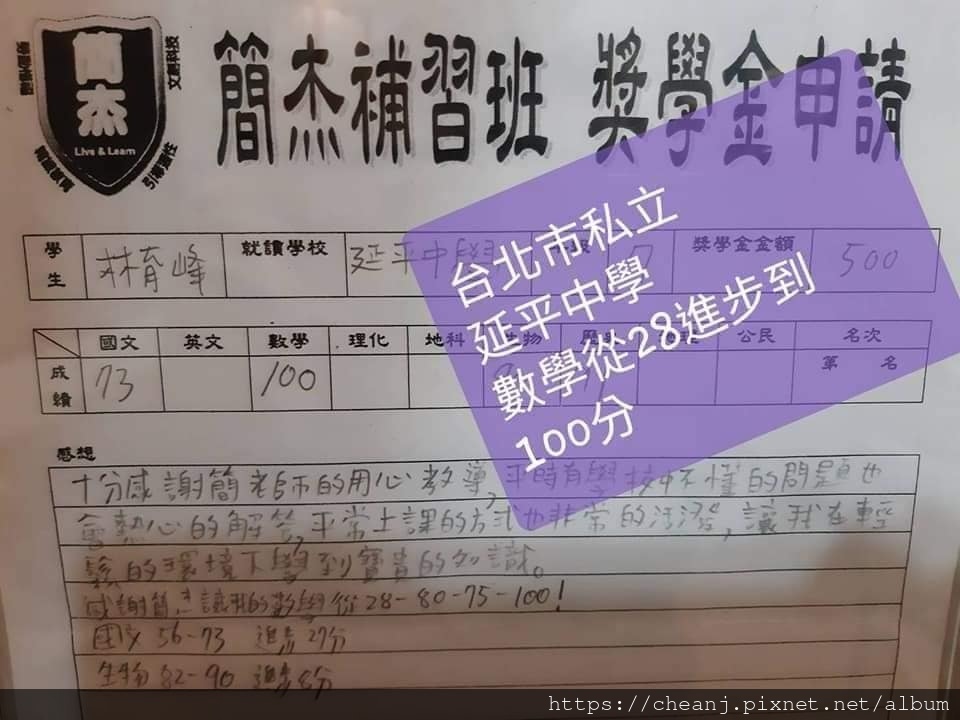 簡杰
Live & Learn
簡杰補習班 獎學金申請
學生 林育峰 就讀學校 延平中學 7 獎學金金額 500
台北市私立
延平中學
數學從28進步到
100分
國文 英文 數學 理化 地科 生物 公民 名次
成績 73 100 第 名
感想
十分感謝簡老師的用心教導,平時有學校中不懂的問題也
會熱心的解答,平常上課的方式也非常的活潑,讓我在輕
鬆的環境下學到寶貴的知識。
感謝簡杰讓我的數學從28-80-75-100!
國文 56-73 進步27分
生物 82-90 進步8分
https://cheanj.pixnet.net/album